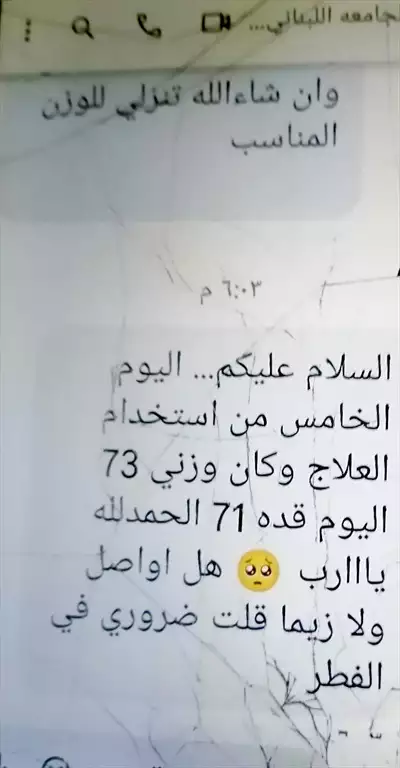 الجامعه اللبناني...
وان شاءالله تنزلي للوزن
المناسب
٦:٠٣ م
السلام عليكم... اليوم
الخامس من استخدام
العلاج وكان وزني 73
اليوم قده 71 الحمدلله
يااارب 🥺 هل اواصل
ولا زيما قلت ضروري في
الفطر